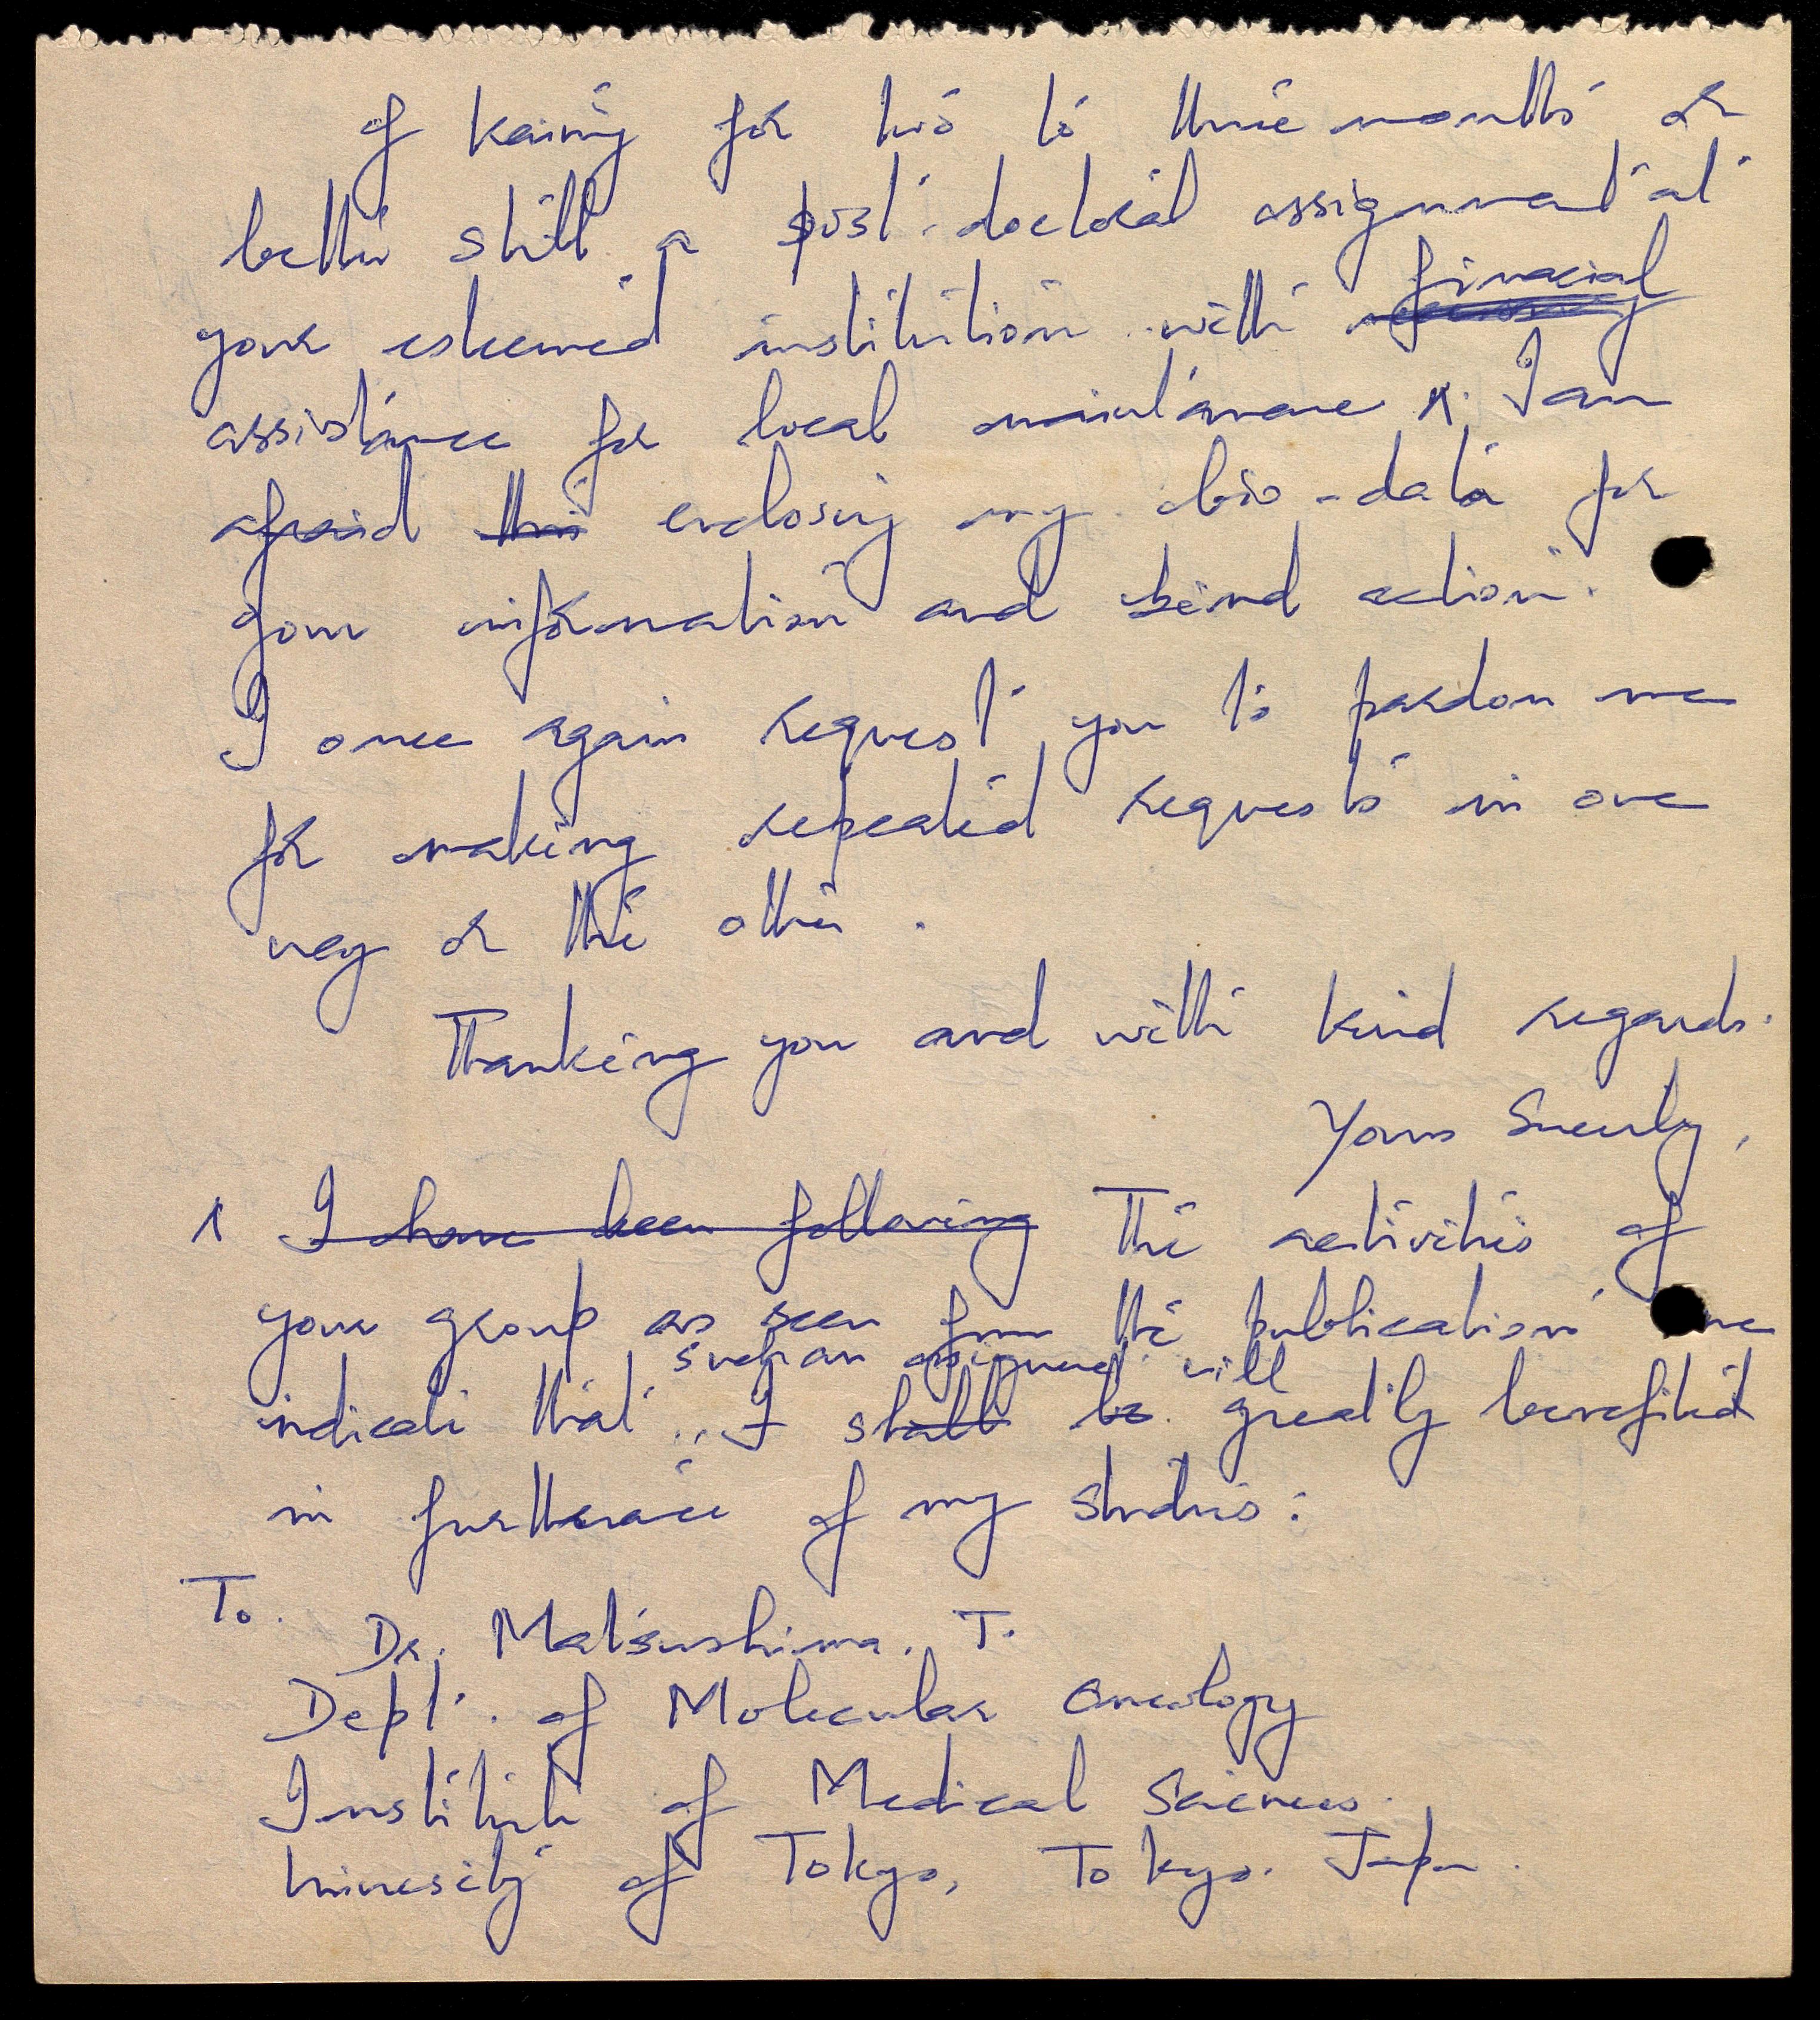 of training for two to three months or
better still a post-doctoral assignment at
your esteemed institution with finacial
assistance for local maintanance x. I am
afraid this enclosing my bio-data for
your information and kind action.
I once again request you to pardon me
for making repeated requests in one
way or the other.
Thanking you and with kind regards.
Yours Sincerely,
x I have been following The activities of
your group as seen from the publication
such an assignment will
indicate that I shall be greatly benefited
in furtherance of my studies:
To.
Dr. Matsushima. T.
Dept. of Molecular Oncology
Institute of Medical Sciences.
University of Tokyo, Tokyo. Japan.